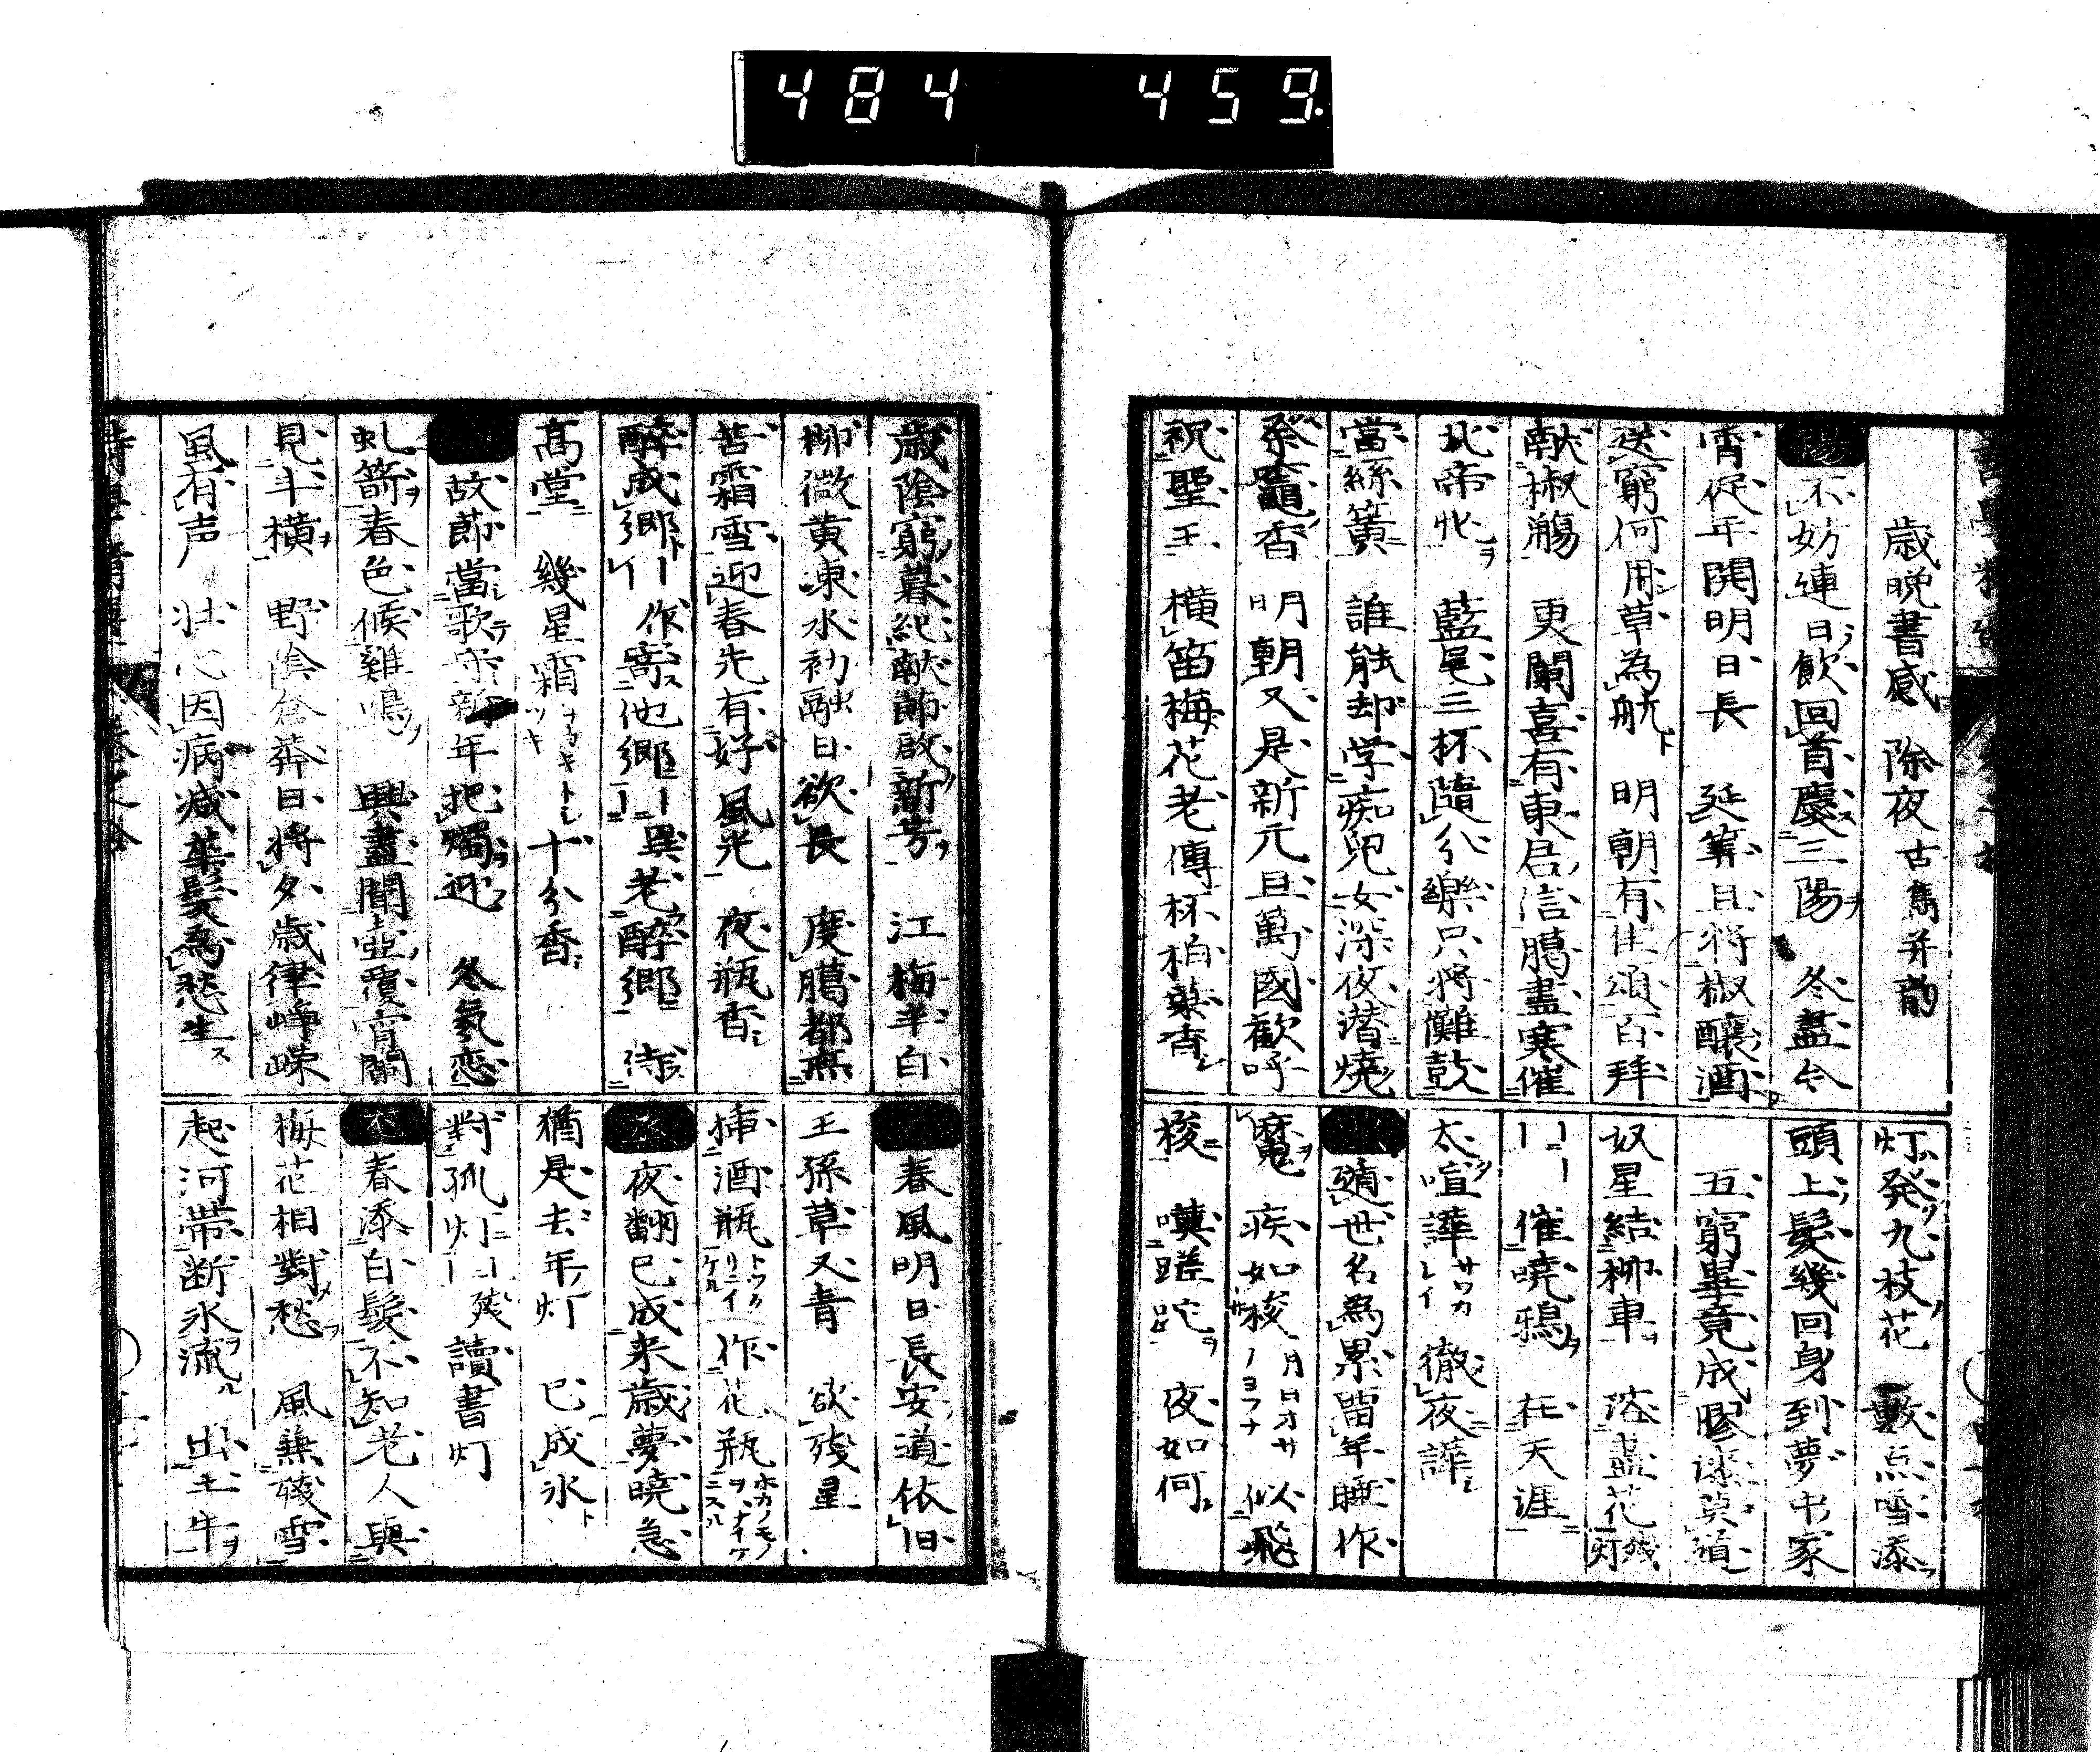 484 459
歳晩書感 除夜古雋并韵
陽 不妨連日飲回首慶三陽 冬盡今
宵促年開明日長 延筭且将椒釀酒
送窮何用草為航 明朝有佳頌百拜
献椒觴 更闌喜有東君信臘盡寒催
北帝 藍尾三杯隨分樂只将儺鼓
當絲簧 誰能却学痴児女深夜潜燒
祭竈香 明朝又是新元旦萬國歡呼
祝聖王 横笛梅花老傳杯柏葉香
灯発九枝花 數点雪添
頭上髮幾回身到夢中家
五窮畢竟成膠漆莫道
奴星結柳車 落盡花残灯
催暁鴉 在天涯
太喧譁サワカレイ 徹夜譁
遁世名為累留年睡作
魔 疾如梭月日オサノヨフナ 似飛
梭 嘆蹉跎 夜如何
歳陰窮暮紀献節啟新芳 江梅半白
柳微黄凍氷初融日欲長 度臘都無
苦霜雪迎春先有好風光 夜瓶香
醉成郷 作寄他郷 異老醉郷 待
高堂 幾星霜 十分香
故節當歌守新年把燭迎 冬氣恋
虬箭春色候雞鳴 興盡聞壺覆宵闌
見斗横 野陰倉莽日将夕歳律崢嶸
風有声 壮心因病減華髪為愁生
春風明日長安道依旧
王孫草又青 欲残星
挿酒瓶 作花瓶
夜翻已成来歳夢暁急
猶是去年灯 已成氷
對孤灯 残 讀書灯
春添白髪不知老人與
梅花相對愁 風無残雪
起河帯断氷流 出土牛